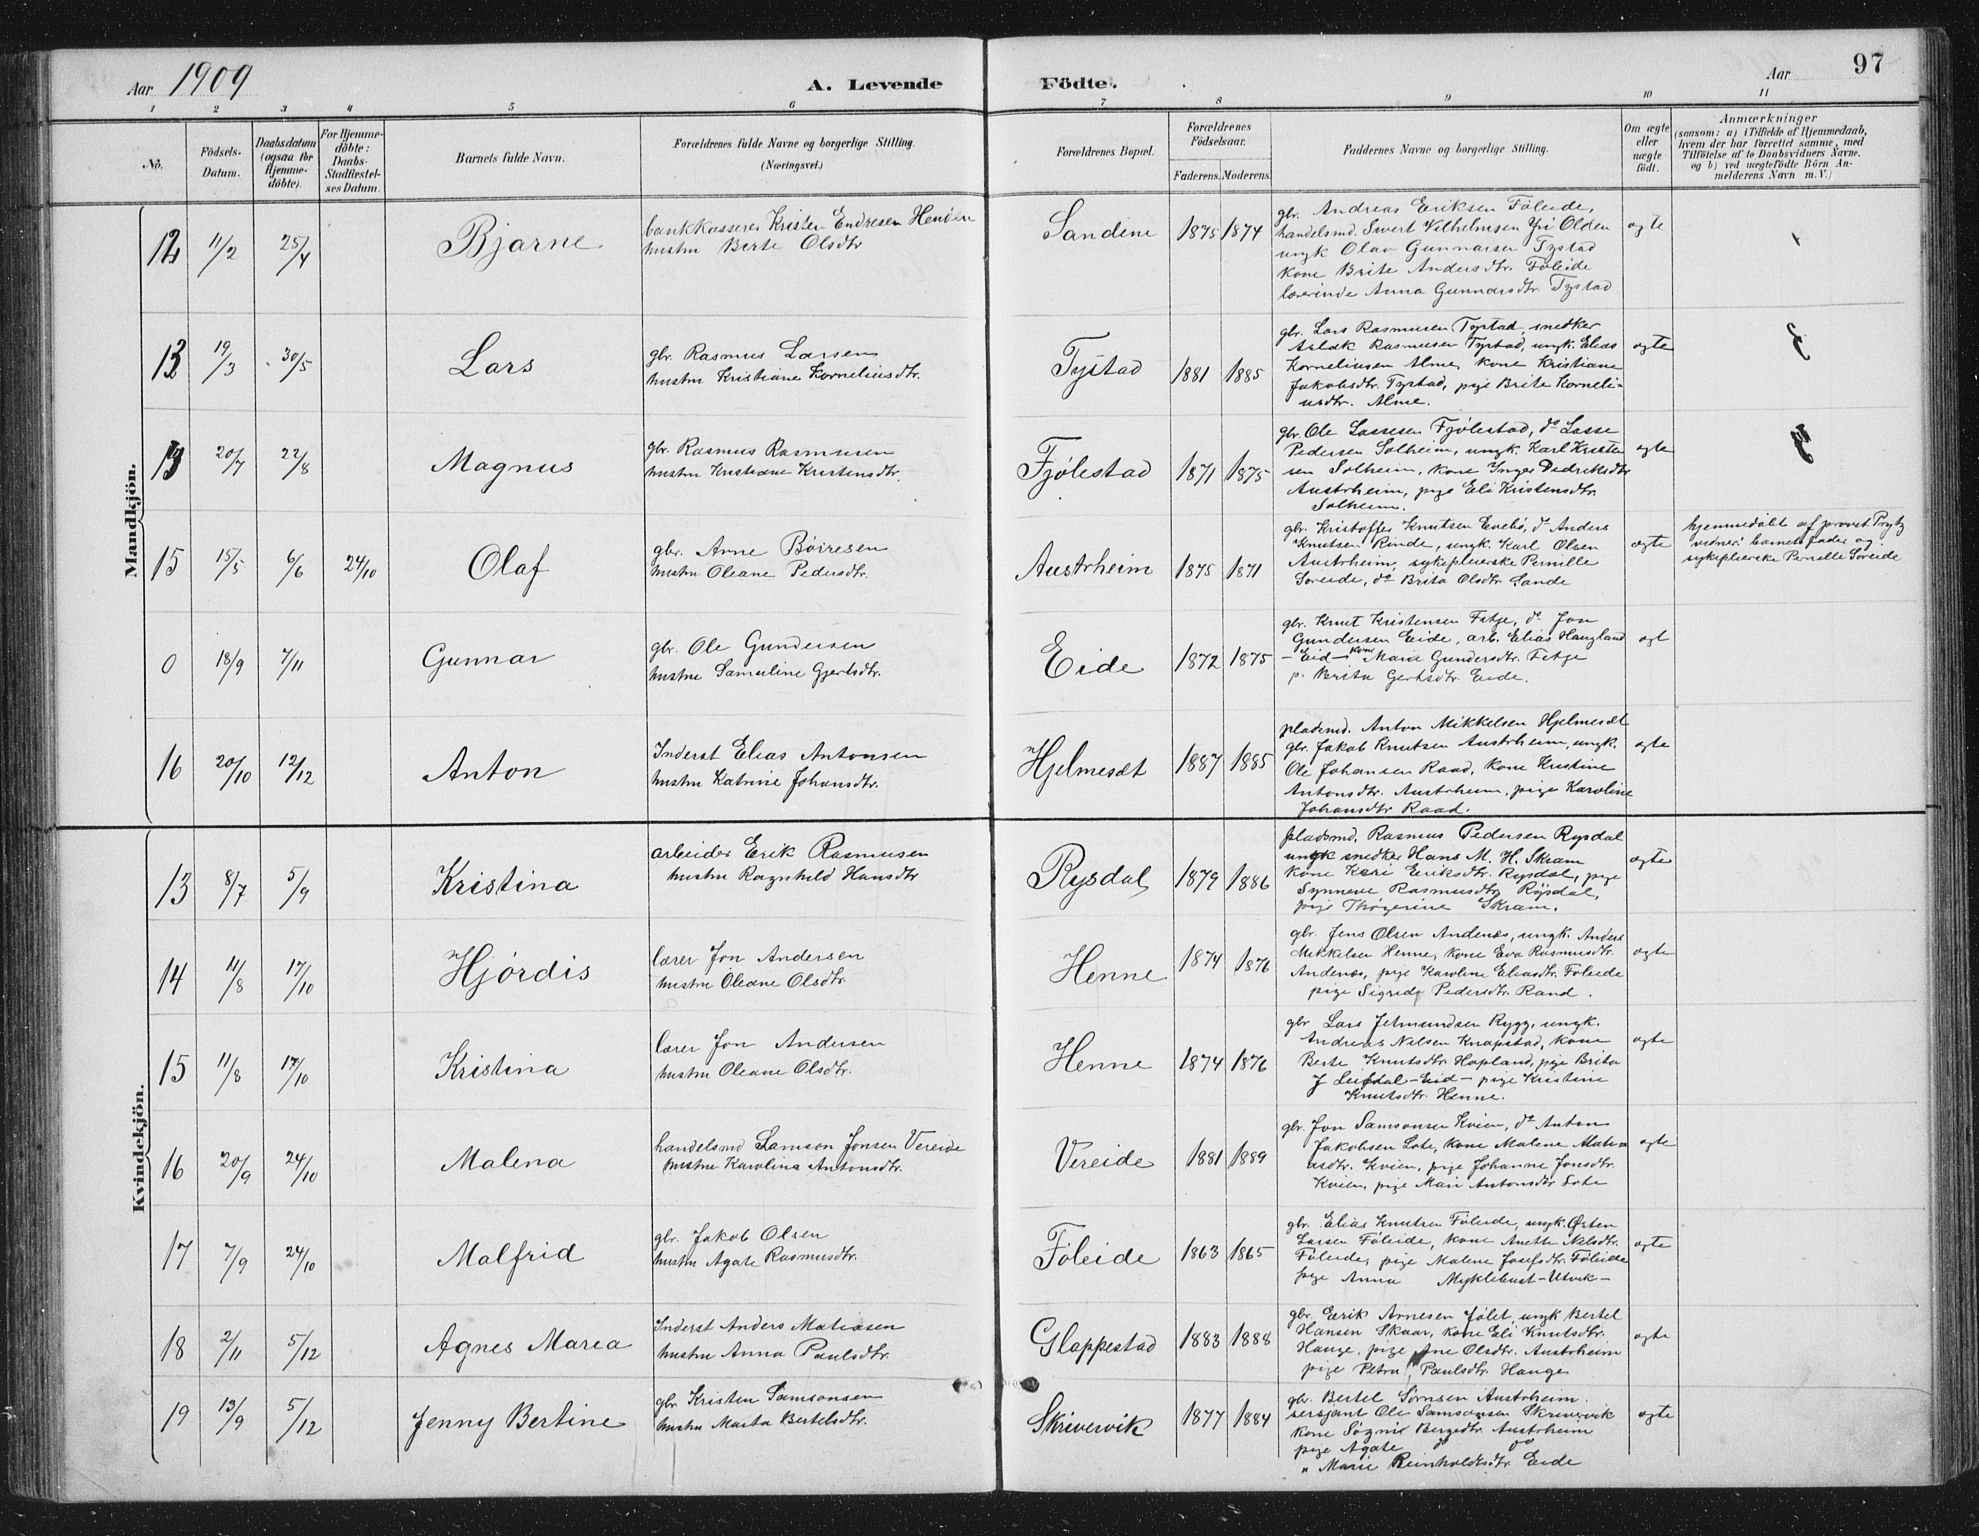 Aar 1909
A. Levende Födte.
Aar
97
1 2 3 4 5 6 7 8 9 10 11
No.
Födsels-Datum.
Daabsdatum (ogsaa for Hjemmedöbte).
For Hjemmedöbte: Daabs-Stadfæstelses Datum.
Barnets fulde Navn.
Forældrenes fulde Navne og borgerlige Stilling. (Næringsvei.)
Forældrenes Bopæl.
Forældrenes Födselsaar.
Faderens. Moderens.
Faddernes Navne og borgerlige Stilling.
Om ægte eller uægte födt.
Anmærkninger
(saasom: a) i Tilfælde af Hjemmedaab, hvem der har forrettet samme, med Tilföielse af to Daabsvidners Navne. og b) ved uægtefödte Börn Anmelderens Navn m. V.)
Mandkjön.
12 11/2 25/4 Bjarne
bankkasserer Kristen Endresen Henden
hustru Berte Olsdtr
Sandene 1875 1874
gbr. Andreas Eriksen Föleide,
handelsmd. Sivert Vilhelmsen Yri Olden
ungk Olav Gunnarsen Tystad
kone Brite Andersdtr. Föleide
lærerinde Anna Gunnarsdtr Tystad
ægte
19/3 30/5 Lars
gbr. Rasmus Larsen
hustru Kristiane Korneliusdtr.
Tystad 1881 1885
gbr. Lars Rasmusen Tystad, snedker
Aslak Rasmusen Tystad, ungk. Elias
Korneliusen Alme, kone Kristiane
Jakobsdtr. Tystad, pige Brite Korneli-
usdtr. Alme.
ægte
20/7 22/8 Magnus
gbr. Rasmus Rasmusen
hustru Kristiane Kristensdtr.
Fjölestad 1871 1875
gbr. Ole Lassesen Fjölestad, do Lasse
Pedersen Solheim, ungk. Karl Kristen
sen Solheim, kone Inger Didriksdtr
Austrheim, pige Eli Kristensdtr.
Solheim.
ægte
15 15/5 6/6 24/10 Olaf
gbr. Arne Börresen
hustru Oleane Pedersdtr.
Austrheim 1875 1871
gbr. Kristoffer Knutsen Evebö, do Anders
Knutsen Rinde, ungk. Karl Olsen
Austrheim, sykepleierske Pernille
Söreide, do Brita Olsdtr Sande
ægte
hjemmedöbt af provst Prytz
vidner: barnets fader og
sykepleierske Pernille Söreide
0 18/9 7/11 Gunnar
gbr. Ole Gundersen
hustru Samuline Gjertsdtr.
Eide 1872 1875
gbr. Knut Kristensen Fitje, do Jon
Gundersen Eide, arb. Elias Haugland
- Eid - kone Marie Gundersdtr. Fitje
p. Brita Gertsdtr. Eide.
ægt
16 20/10 12/12 Anton
Inderst Elias Antonsen
hustru Katrine Johansdtr.
Hjelmesæt 1887 1885
pladsmd. Anton Mikkelsen Hjelmesæt
gbr. Jakob Knutsen Austrheim, ungk.
Ole Johansen Raad, kone Kristine
Antonsdtr. Austrheim, pige Karoline
Johansdtr Raad.
ægte
Kvindekjön.
13 8/7 5/9 Kristina
arbeider Erik Rasmusen
hustru Ragnhild Hansdtr
Rysdal 1879 1886
pladsmd. Rasmus Pedersen Rysdal
ungk snedker Hans M. H. Skram
kone Kari Eriksdtr. Rysdal, pige
Synneve Rasmusdtr Röysdal,
pige Thögerine Skram.
ægte
14 11/8 17/10 Hjördis
lærer Jon Andersen
hustru Oleane Olsdtr.
Henne 1874 1876
gbr. Jens Olsen Andenæs, ungk. Anders
Mikkelsen Henne, kone Eva Rasmusdtr.
Andenæs, pige Karoline Eliasdtr. Föleide
pige Sigrid Pedersdtr Rand.
ægte
15 11/8 17/10 Kristina
lærer Jon Andersen
hustru Oleane Olsdtr.
Henne 1874 1876
gbr Lars Jetmundsen Rygg, ungk.
Andreas Nilsen Knapstad, kone
Berte Knutsdtr. Hopland, pige Brita
J Leifdal - Eid - pige Kristine
Knutsdtr. Henne.
ægte
16 20/9 24/10 Malena
handelsmd Samson Jonsen Vereide
hustru Karolina Antonsdtr.
Vereide 1881 1889
gbr. Jon Samsonsen Kvien, do Anton
Jakobsen Lote, kone Malene Mati-
asdtr. Kvien, pige Johanne Jonsdtr.
Kvien, pige Mari Antonsdtr Lote
ægte
17 7/9 24/10 Malfrid
gbr. Jakob Olsen
hustru Agate Rasmusdtr.
Föleide 1863 1865
gbr. Elias Knutsen Föleide, ungk. Østen
Larsen Föleide, kone Anette Nilsdtr.
Föleide, pige Malene Josefsdtr. Föleide
pige Anna Myklebust - Utvik -
ægte
18 2/11 5/12 Agnes Maria
Inderst Anders Matiasen
hustru Anna Paulsdtr.
Glappestad 1883 1888
gbr. Eerik Arnesen Jölet, ungk Bertel
Hansen Skaar, kone Eli Knutsdtr.
Hauge, pige Ane Olsdtr. Austrheim
pige Petra Paulsdtr Hauge
ægte
19 13/9 5/12 Jenny Bertine
gbr. Kristen Samsonsen
hustru Marta Bertelsdtr.
Skrivervik 1877 1884
gbr. Bertel Sörnsen Austrheim.
sersjant Ole Samsonsen Skrivervik
kone Sögni Bergedtr. Austrheim
pige Agate do do
" Marie Reinholdtsdtr Eide
ægte